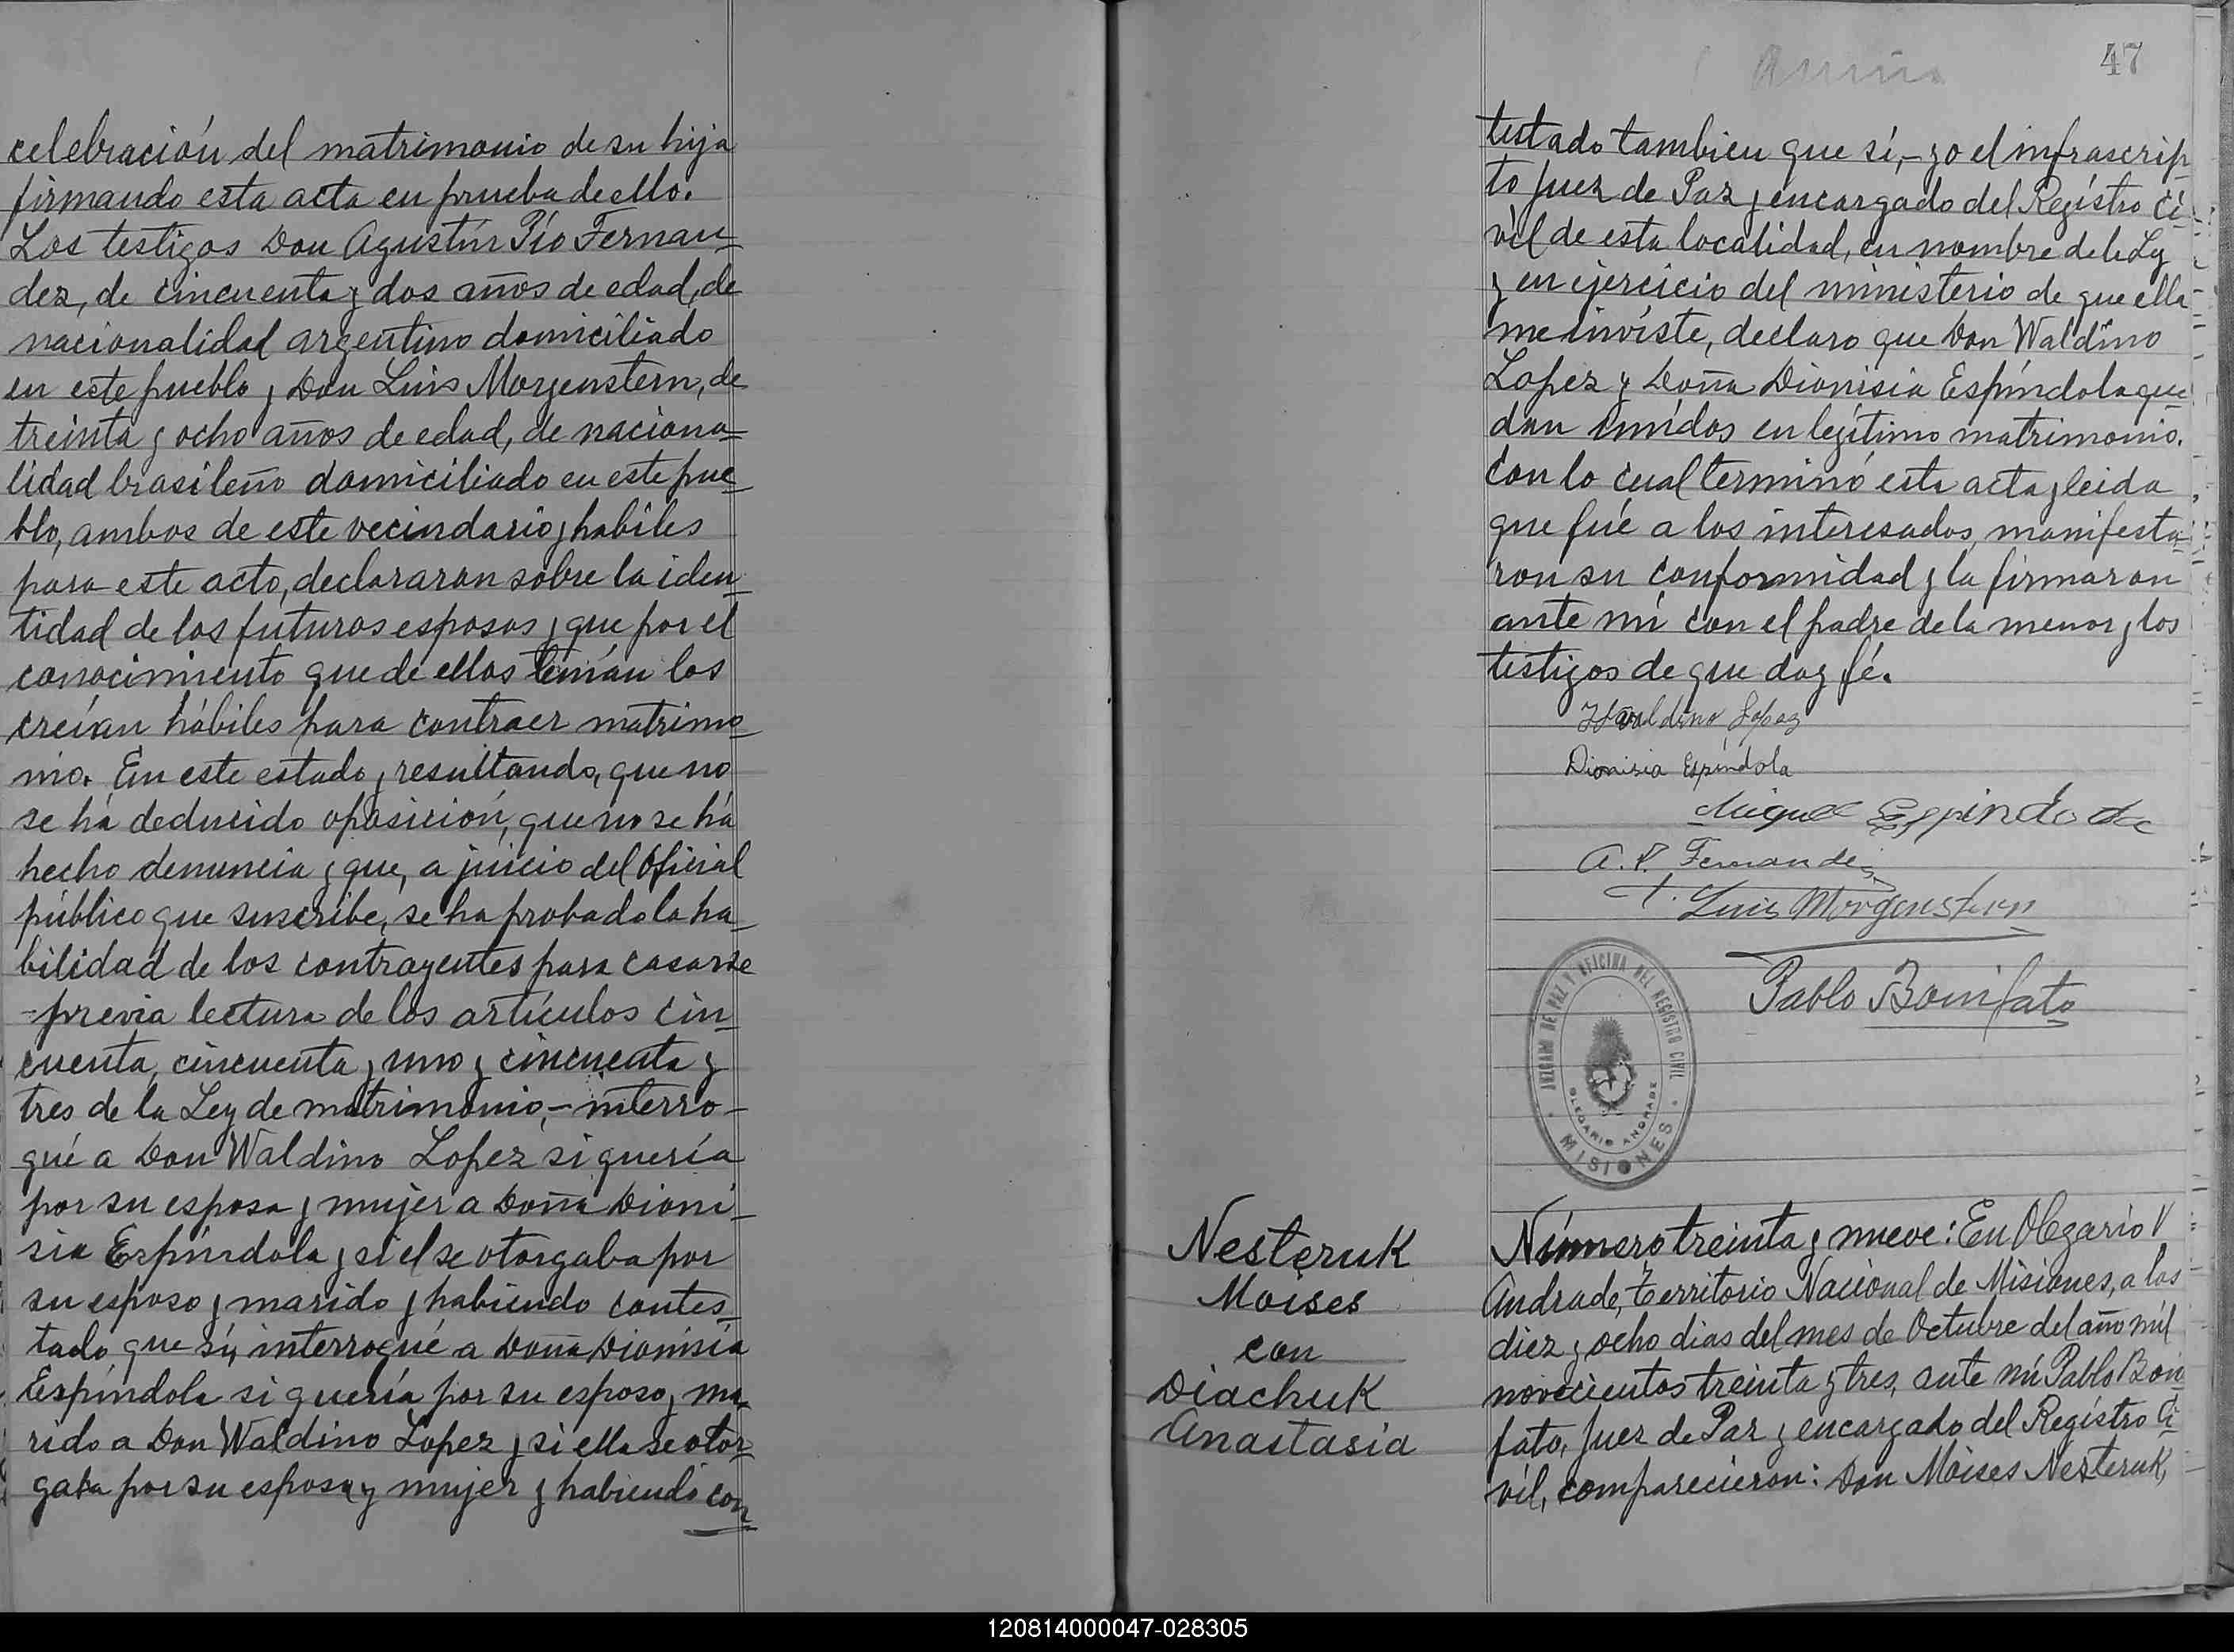 celebración del matrimonio de su hija
firmando esta acta en prueba de ello.
Los testigos Don Agustín Pío Fernan=
dez, de cincuenta y dos años de edad, de
nacionalidad argentino domiciliado
en este pueblo y Don Luis Morgenstern, de
treinta y ocho años de edad, de naciona=
lidad brasileño domiciliado en este pue=
blo, ambos de este vecindario y habiles
para este acto, declararon sobre la iden=
tidad de los futuros esposos y que por el
conocimiento que de ellos tenían los
creían hábiles para contraer matrimo=
nio. En este estado y resultando, que no
se há deducido oposición, que no se há
hecho denuncia y que, a juicio del Oficial
público que suscribe, se ha probado la ha=
bilidad de los contrayentes para casarse
-previa lectura de los artículos cin=
cuenta, cincuenta y uno y cincuenta y
tres de la Ley de matrimonio,- interro-
gué a Don Waldino Lopez si quería
por su esposa y mujer a Doña Dioni-
sia Espíndola y si el se otorgaba por
su esposo y marido y habiendo contes=
tado que sí, interrogué a Doña Dionisia
Espíndola si quería por su esposo y ma-
rido a Don Waldino Lopez y si ella se otor=
gaba por su esposa y mujer y habiendo con=
47
testado tambien que sí,- yo el infrascrip=
to Juez de Paz y encargado del Registro Ci=
vil de esta localidad, en nombre de la Ley
y en ejercicio del ministerio de que ella
me inviste, declaro que Don Waldino
Lopez y Doña Dionisia Espíndola que=
dan unidos en legítimo matrimonio.
Con lo cual terminó esta acta y leida
que fué a los interesados, manifesta=
ron su conformidad y la firmaron
ante mí con el padre de la menor y los
testigos de que doy fé.
Waldino Lopez
Dionisia Espíndola
Miguel Espindola
A. P. Fernandez
Luis Morgenstern
Pablo Bonifato
JUZGADO DE PAZ Y OFICINA DEL REGISTRO CIVIL
OLEGARIO ANDRADE
MISIONES
Nesteruk
Moises
con
Diachuk
Anastasia
Número treinta y nueve: En Olegario V
Andrade, Territorio Nacional de Misiones, a los
diez y ocho dias del mes de Octubre del año mil
novecientos treinta y tres, ante mí Pablo Boni
fato, Juez de Paz y encargado del Registro Ci
vil, comparecieron: Don Moises Nesteruk,
120814000047-028305